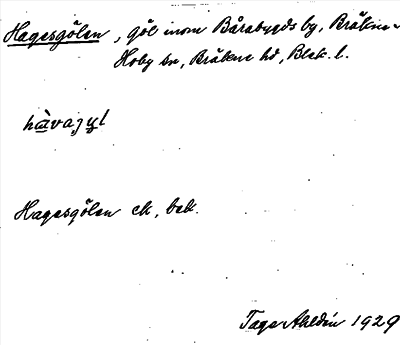 Hagesgölen, göl inom Bårabygds by, Bräkne-
Hoby sn, Bräkne hd, Blek. l.
hàvaȝyl
Hagesgölen ek, bek.
Tage Ahldén 1929